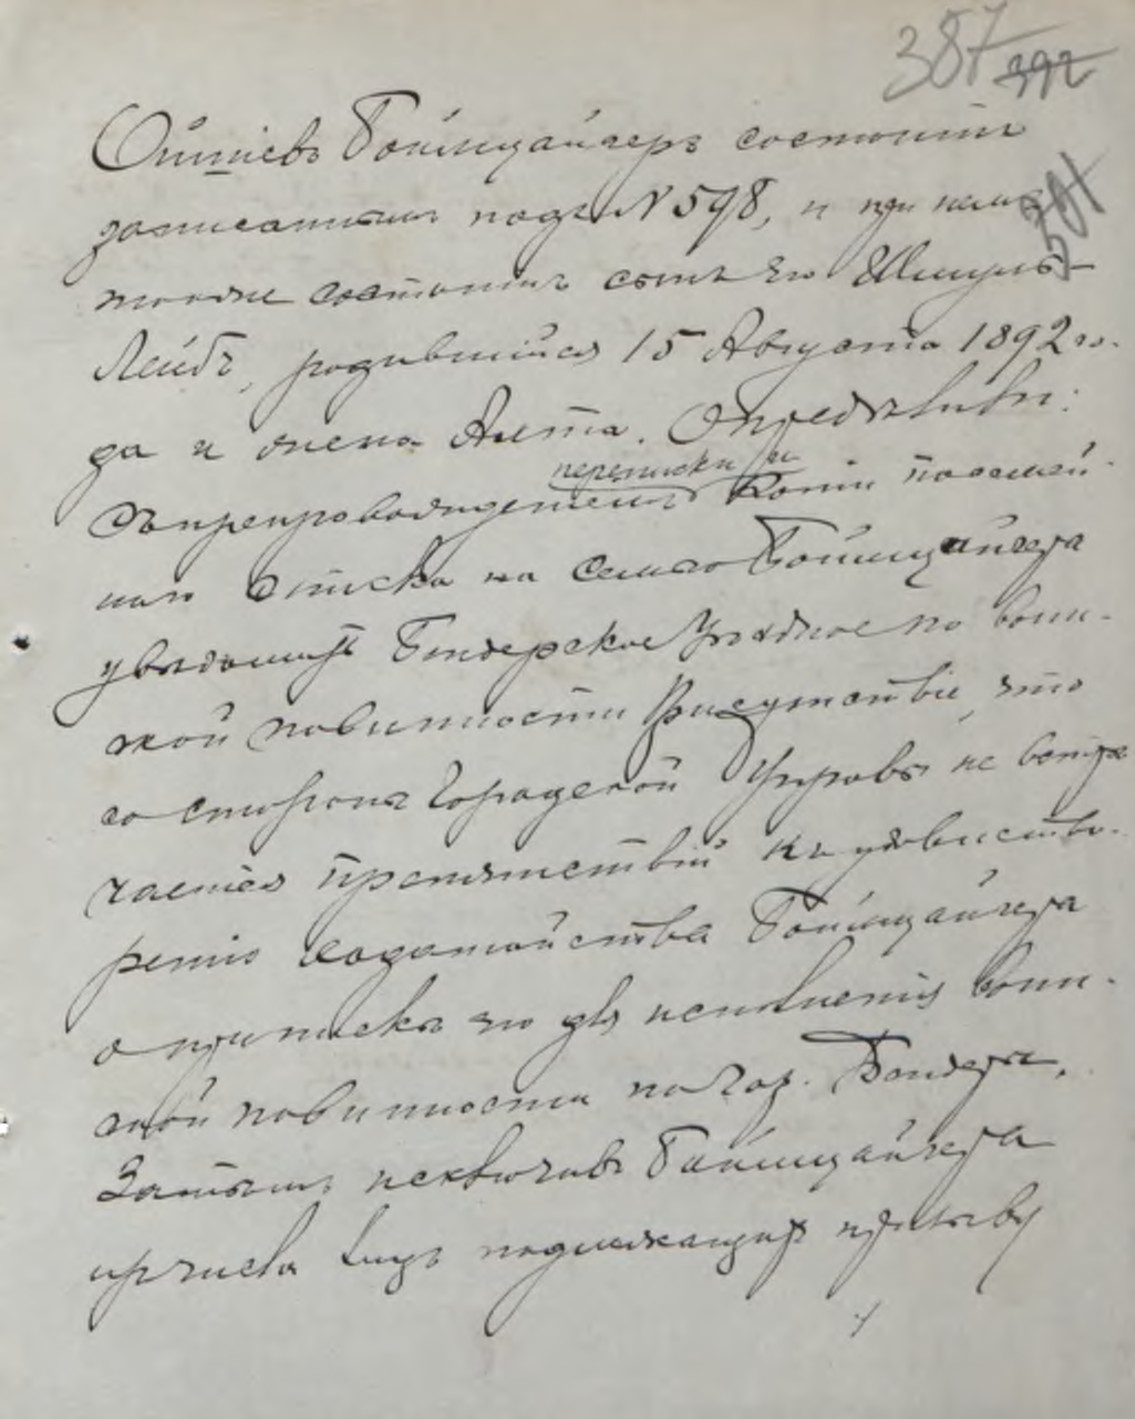 387 392
391
Ойшіевъ Боймцайгеръ состоитъ
записаннымъ подъ N 598, и при немъ
также состоитъ сынъ его Шмуль-
Лейбъ, родившійся 15 Августа 1892 го-
да и жена Анета. Опредѣлили:
переписки и
Съ препровожденіемъ копіи посемей-
наго списка на семью Боймцайгера
увѣдомить Бендерское Уѣздное по воин-
ской повинности Присутствіе, что
со стороны Городской Управы не встрѣ-
чается препятствій къ удовлетво-
ренію ходатайства Боймцайгера
о припискѣ его для исполненія воин-
ской повинности по гор. Бендеры.
Затѣмъ исключивъ Боймцайгера
изъ числа лицъ подлежащихъ призыву